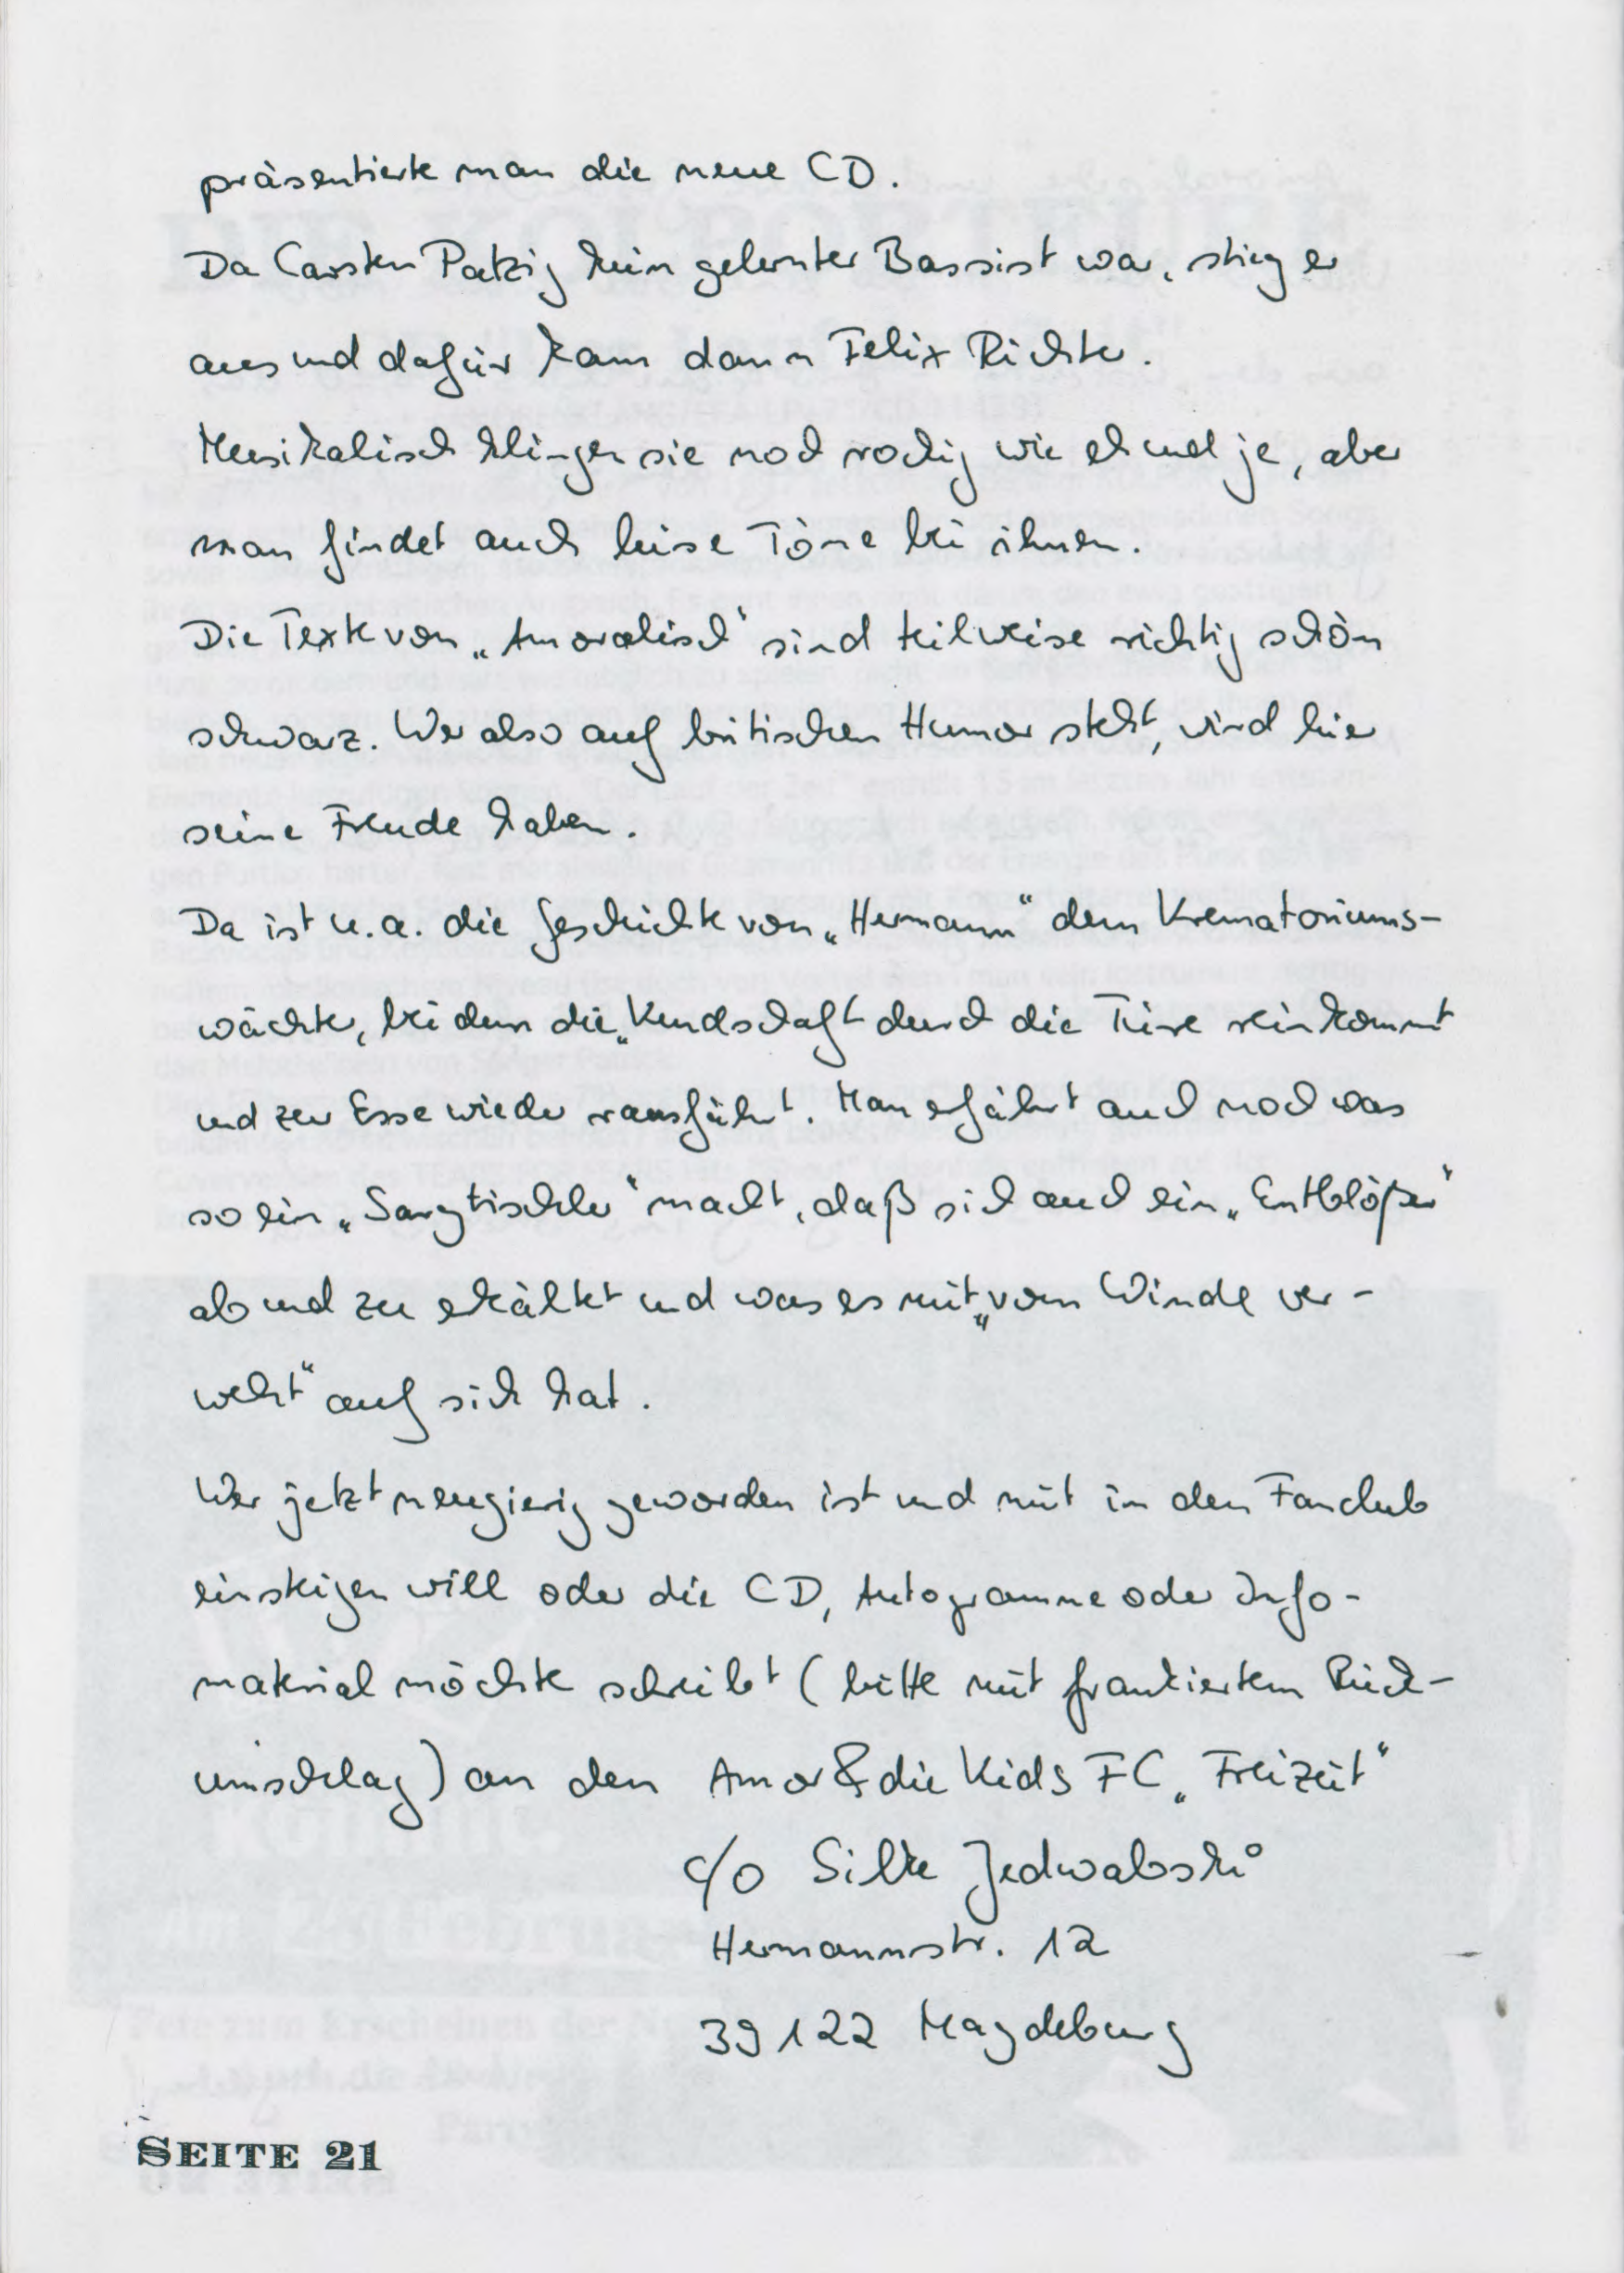 präsentierte man die neue CD.
Da Carsten Patzig kein gelernter Bassist war, stieg er
aus und dafür kam dann Felix Richter.
Musikalisch klingen sie noch rockig wie eh und je, aber
man findet auch leise Töne bei ihnen.
Die Texte von „Amoralisch“ sind teilweise richtig schön
schwarz. Wer also auf britischen Humor steht, wird hier
seine Freude haben.
Da ist u.a. die Geschichte von „Hermann“ dem Krematoriums-
wächter, bei dem die „Kundschaft durch die Türe reinkommt
und zur Esse wieder rausfährt. Man erfährt auch noch was
so ein „Sargtischler“ macht, daß sich auch ein „Entblößer“
ab und zu erkältet und was es mit „vom Winde ver-
weht“ auf sich hat.
Wer jetzt neugierig geworden ist und mit in den Fanclub
einsteigen will oder die CD, Autogramme oder Info-
material möchte schreibt (bitte mit frankiertem Rück-
umschlag) an den Amor & die Kids FC „Freizeit“
c/o Silke Jedwabski
Hermannstr. 12
39122 Magdeburg
SEITE 21